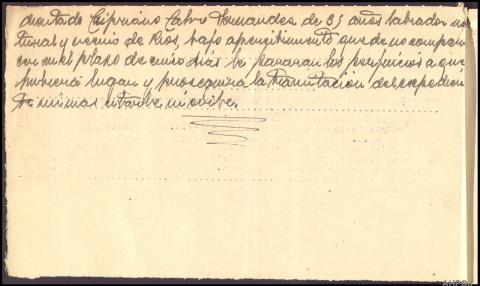 diental Cipriano Calvo Fernandes de 35 años labrador na
tural y vecino de Rios, bajo apercibimiento que de no compare
cer en el plazo de cinco dias le pararan los perjuicios a que
hubiera lugar y proseguira la tramitacion del expedien
te